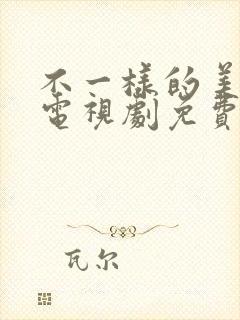 不一樣的美
電視劇免費
瓦尔